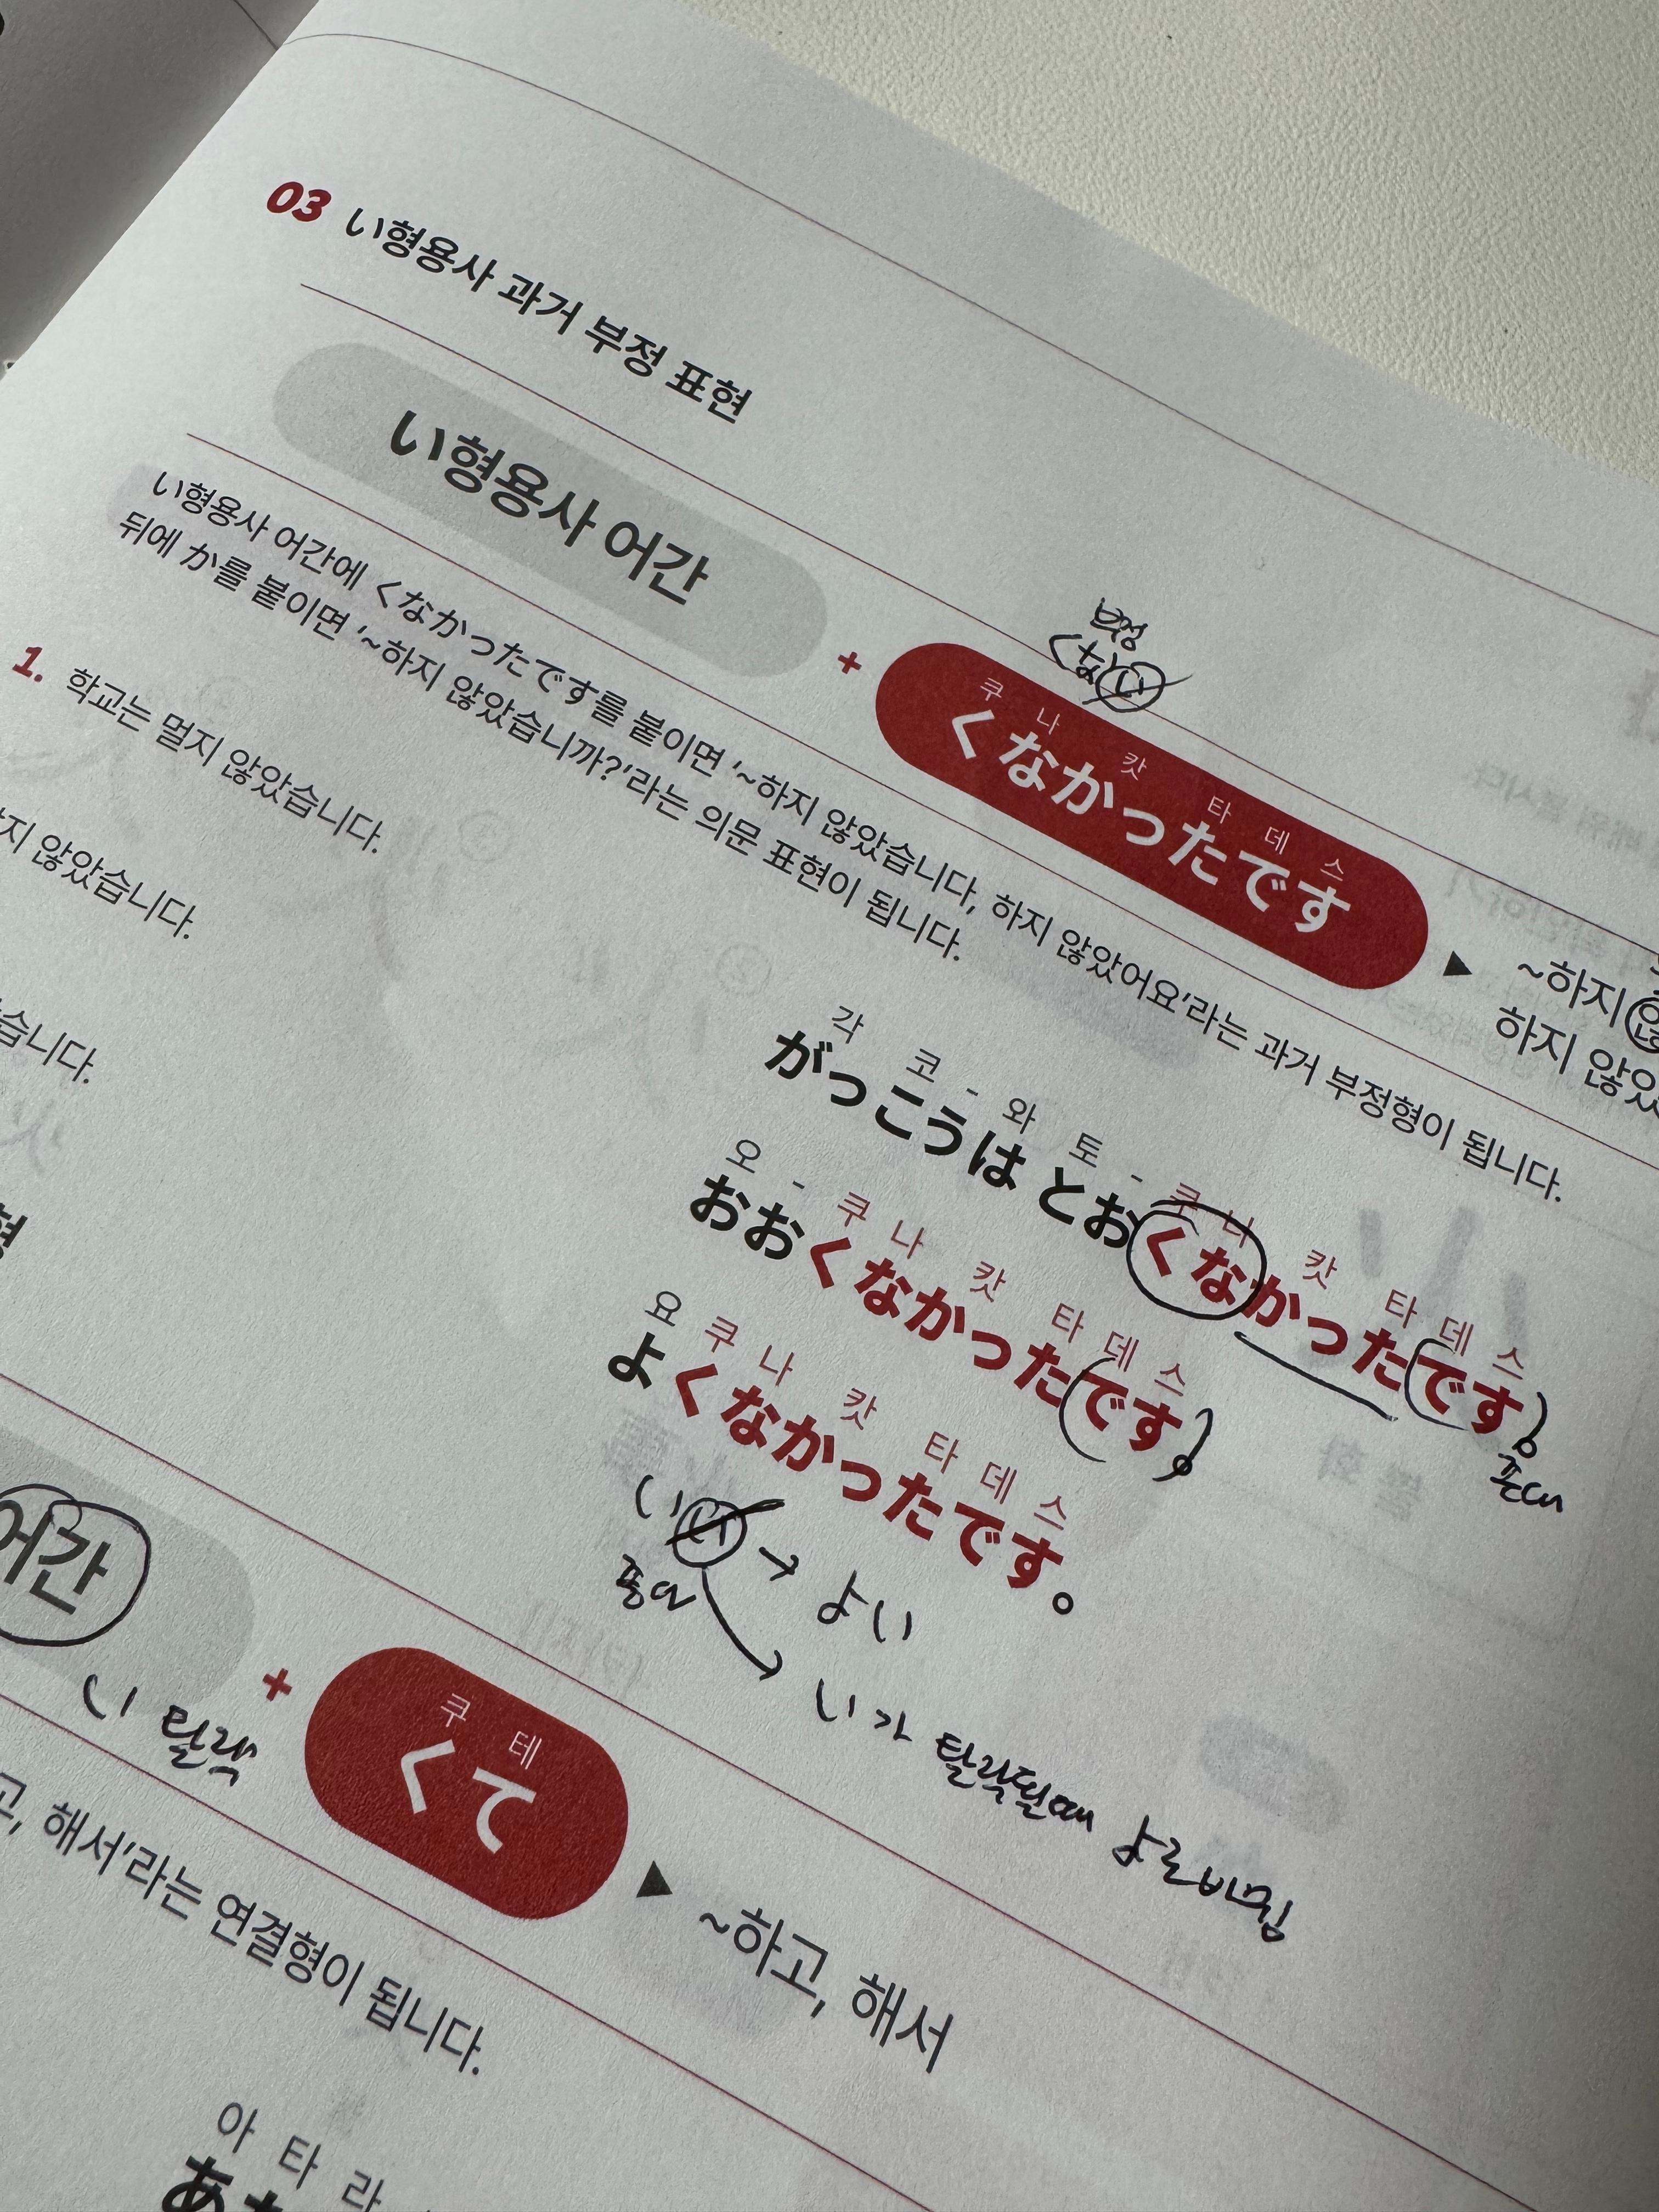 03 い형용사 과거 부정 표현
い형용사 어간
+
부정
くない
쿠 나 캇 타 데 스
くなかったです
▶ ~하지
하지 않았
い형용사 어간에 くなかったです를 붙이면 '~하지 않았습니다, 하지 않았어요'라는 과거 부정형이 됩니다.
뒤에 か를 붙이면 '~하지 않았습니까?'라는 의문 표현이 됩니다.
1. 학교는 멀지 않았습니다.
각 코 - 와 토 - 쿠 나 캇 타 데 스
がっこうは とおくなかったです。
않았습니다.
오 - 쿠 나 캇 타 데 스
おおくなかったです。
습니다.
요 쿠 나 캇 타 데 스
よくなかったです。
いい → よい
い가 탈락될때 よ로 바뀜
어간
い 탈락
+
쿠 테
くて
▶ ~하고, 해서
고, 해서'라는 연결형이 됩니다.
아 타 라